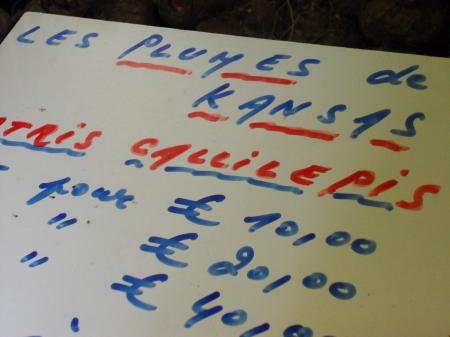 LES PLUMES de
KANSAS
ATRIS CALLILEPIS
" pour € 10,00
" € 20,00
" € 40,00